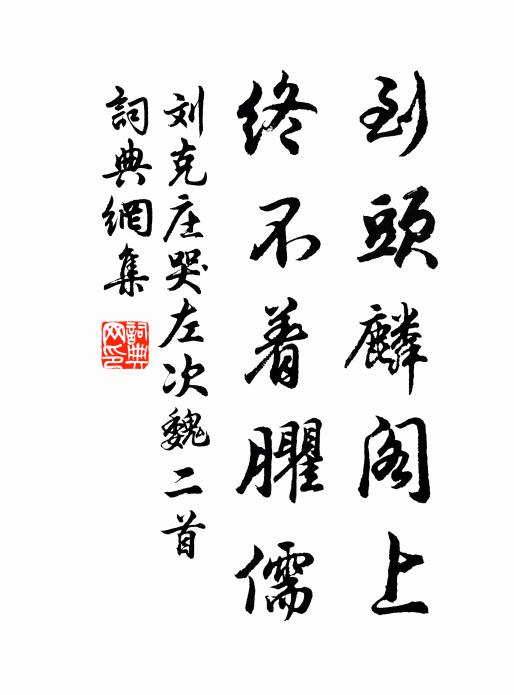 到頭麟阁上
终不着臞儒
刘克庄哭左次魏二首
詞典網集
詞典網印